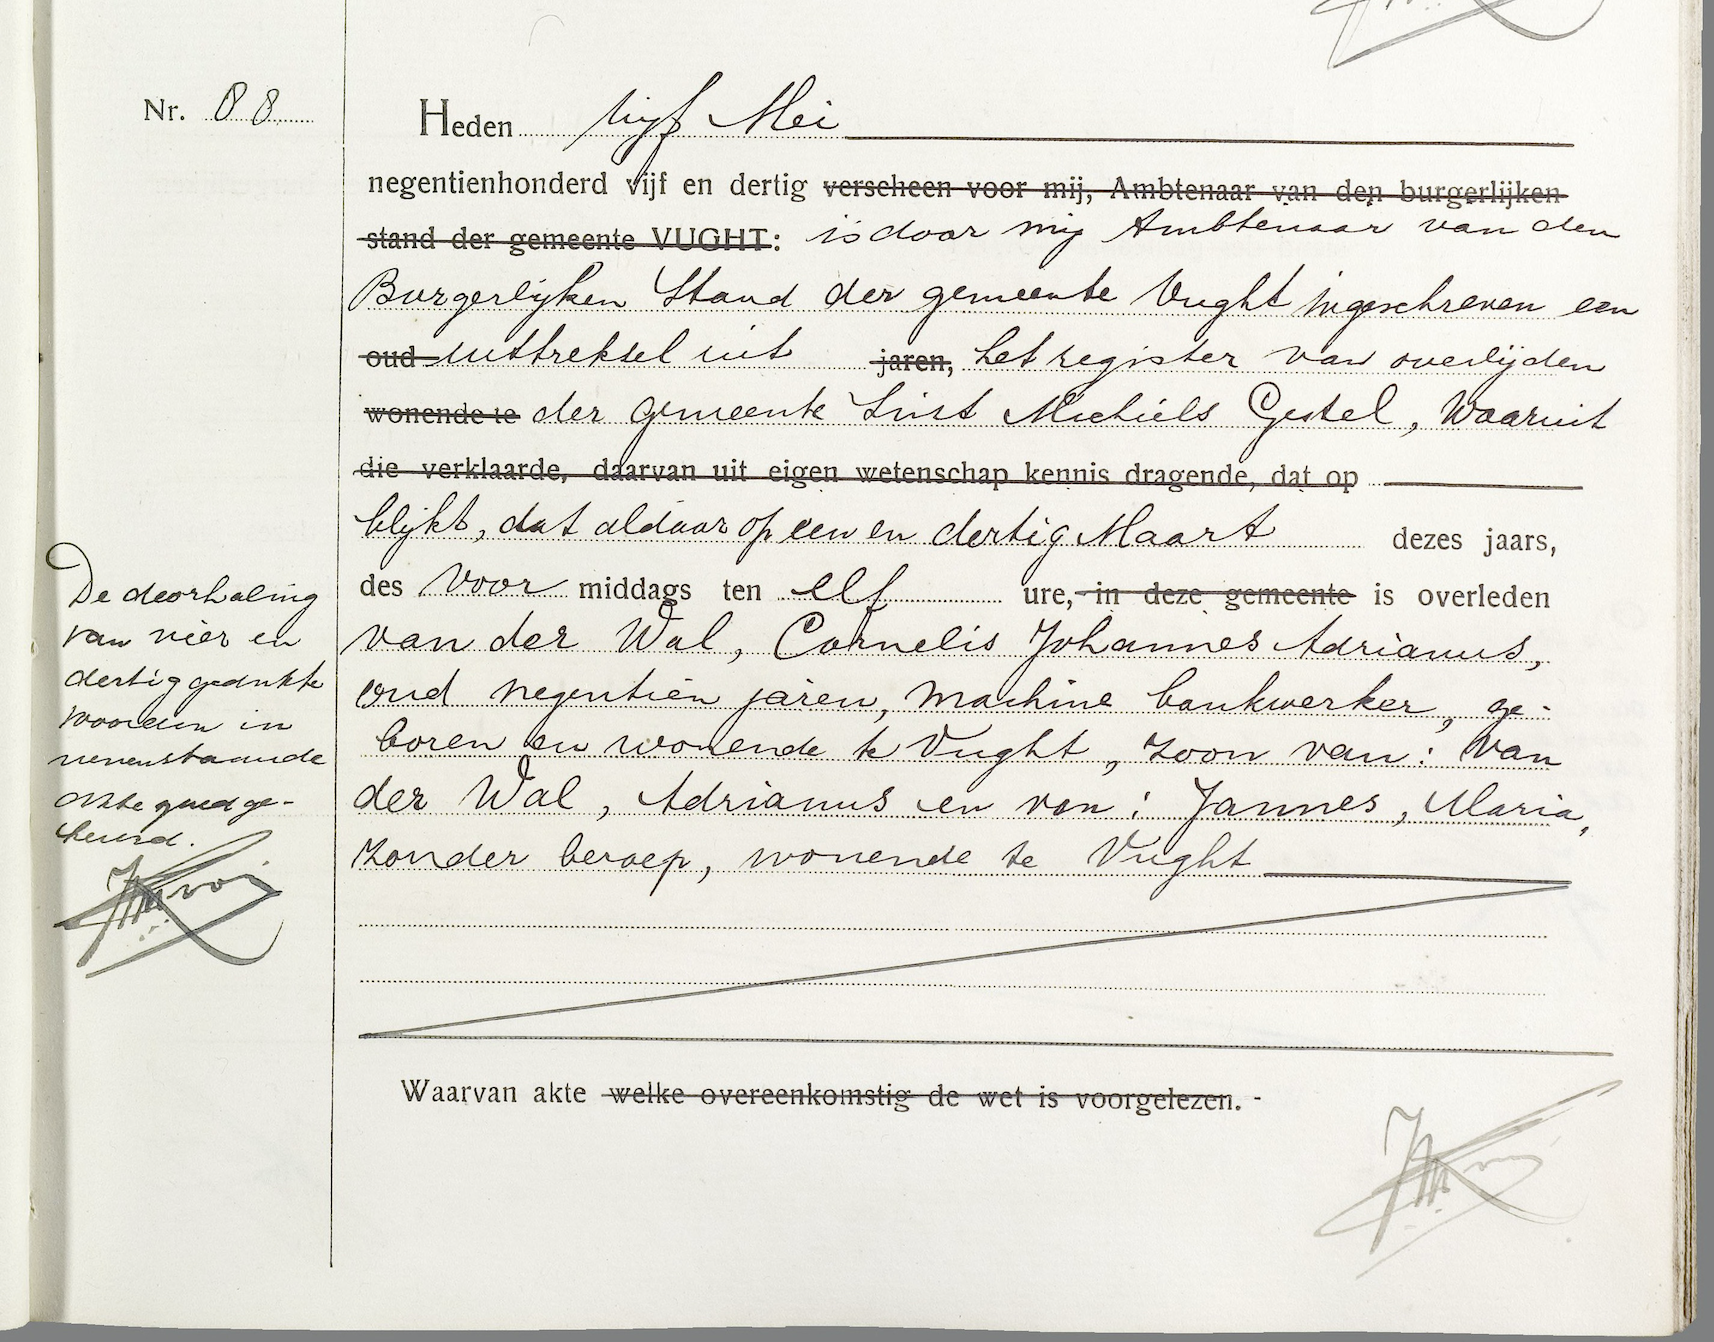 Nr. 88
Heden vijf Mei
negentienhonderd vijf en dertig verscheen voor mij, Ambtenaar van den burgerlijken
stand der gemeente VUGHT: is door mij Ambtenaar van den
Burgerlijken Stand der gemeente Vught ingeschreven een
oud uittreksel uit jaren, het register van overlijden
wonende te der gemeente Sint Michiels Gestel, waaruit
die verklaarde, daarvan uit eigen wetenschap kennis dragende, dat op
blijkt, dat aldaar op een en dertig Maart dezes jaars,
des voor middags ten elf ure, in deze gemeente is overleden
van der Wal, Cornelis Johannes Adrianus,
oud negentien jaren, machine bankwerker, ge-
boren en wonende te Vught, zoon van: van
der Wal, Adrianus en van: Jannes, Maria,
zonder beroep, wonende te Vught
Waarvan akte welke overeenkomstig de wet is voorgelezen. -
De doorhaling
van vier en
dertig gedrukte
woorden in
nevenstaande
akte goedge-
keurd.